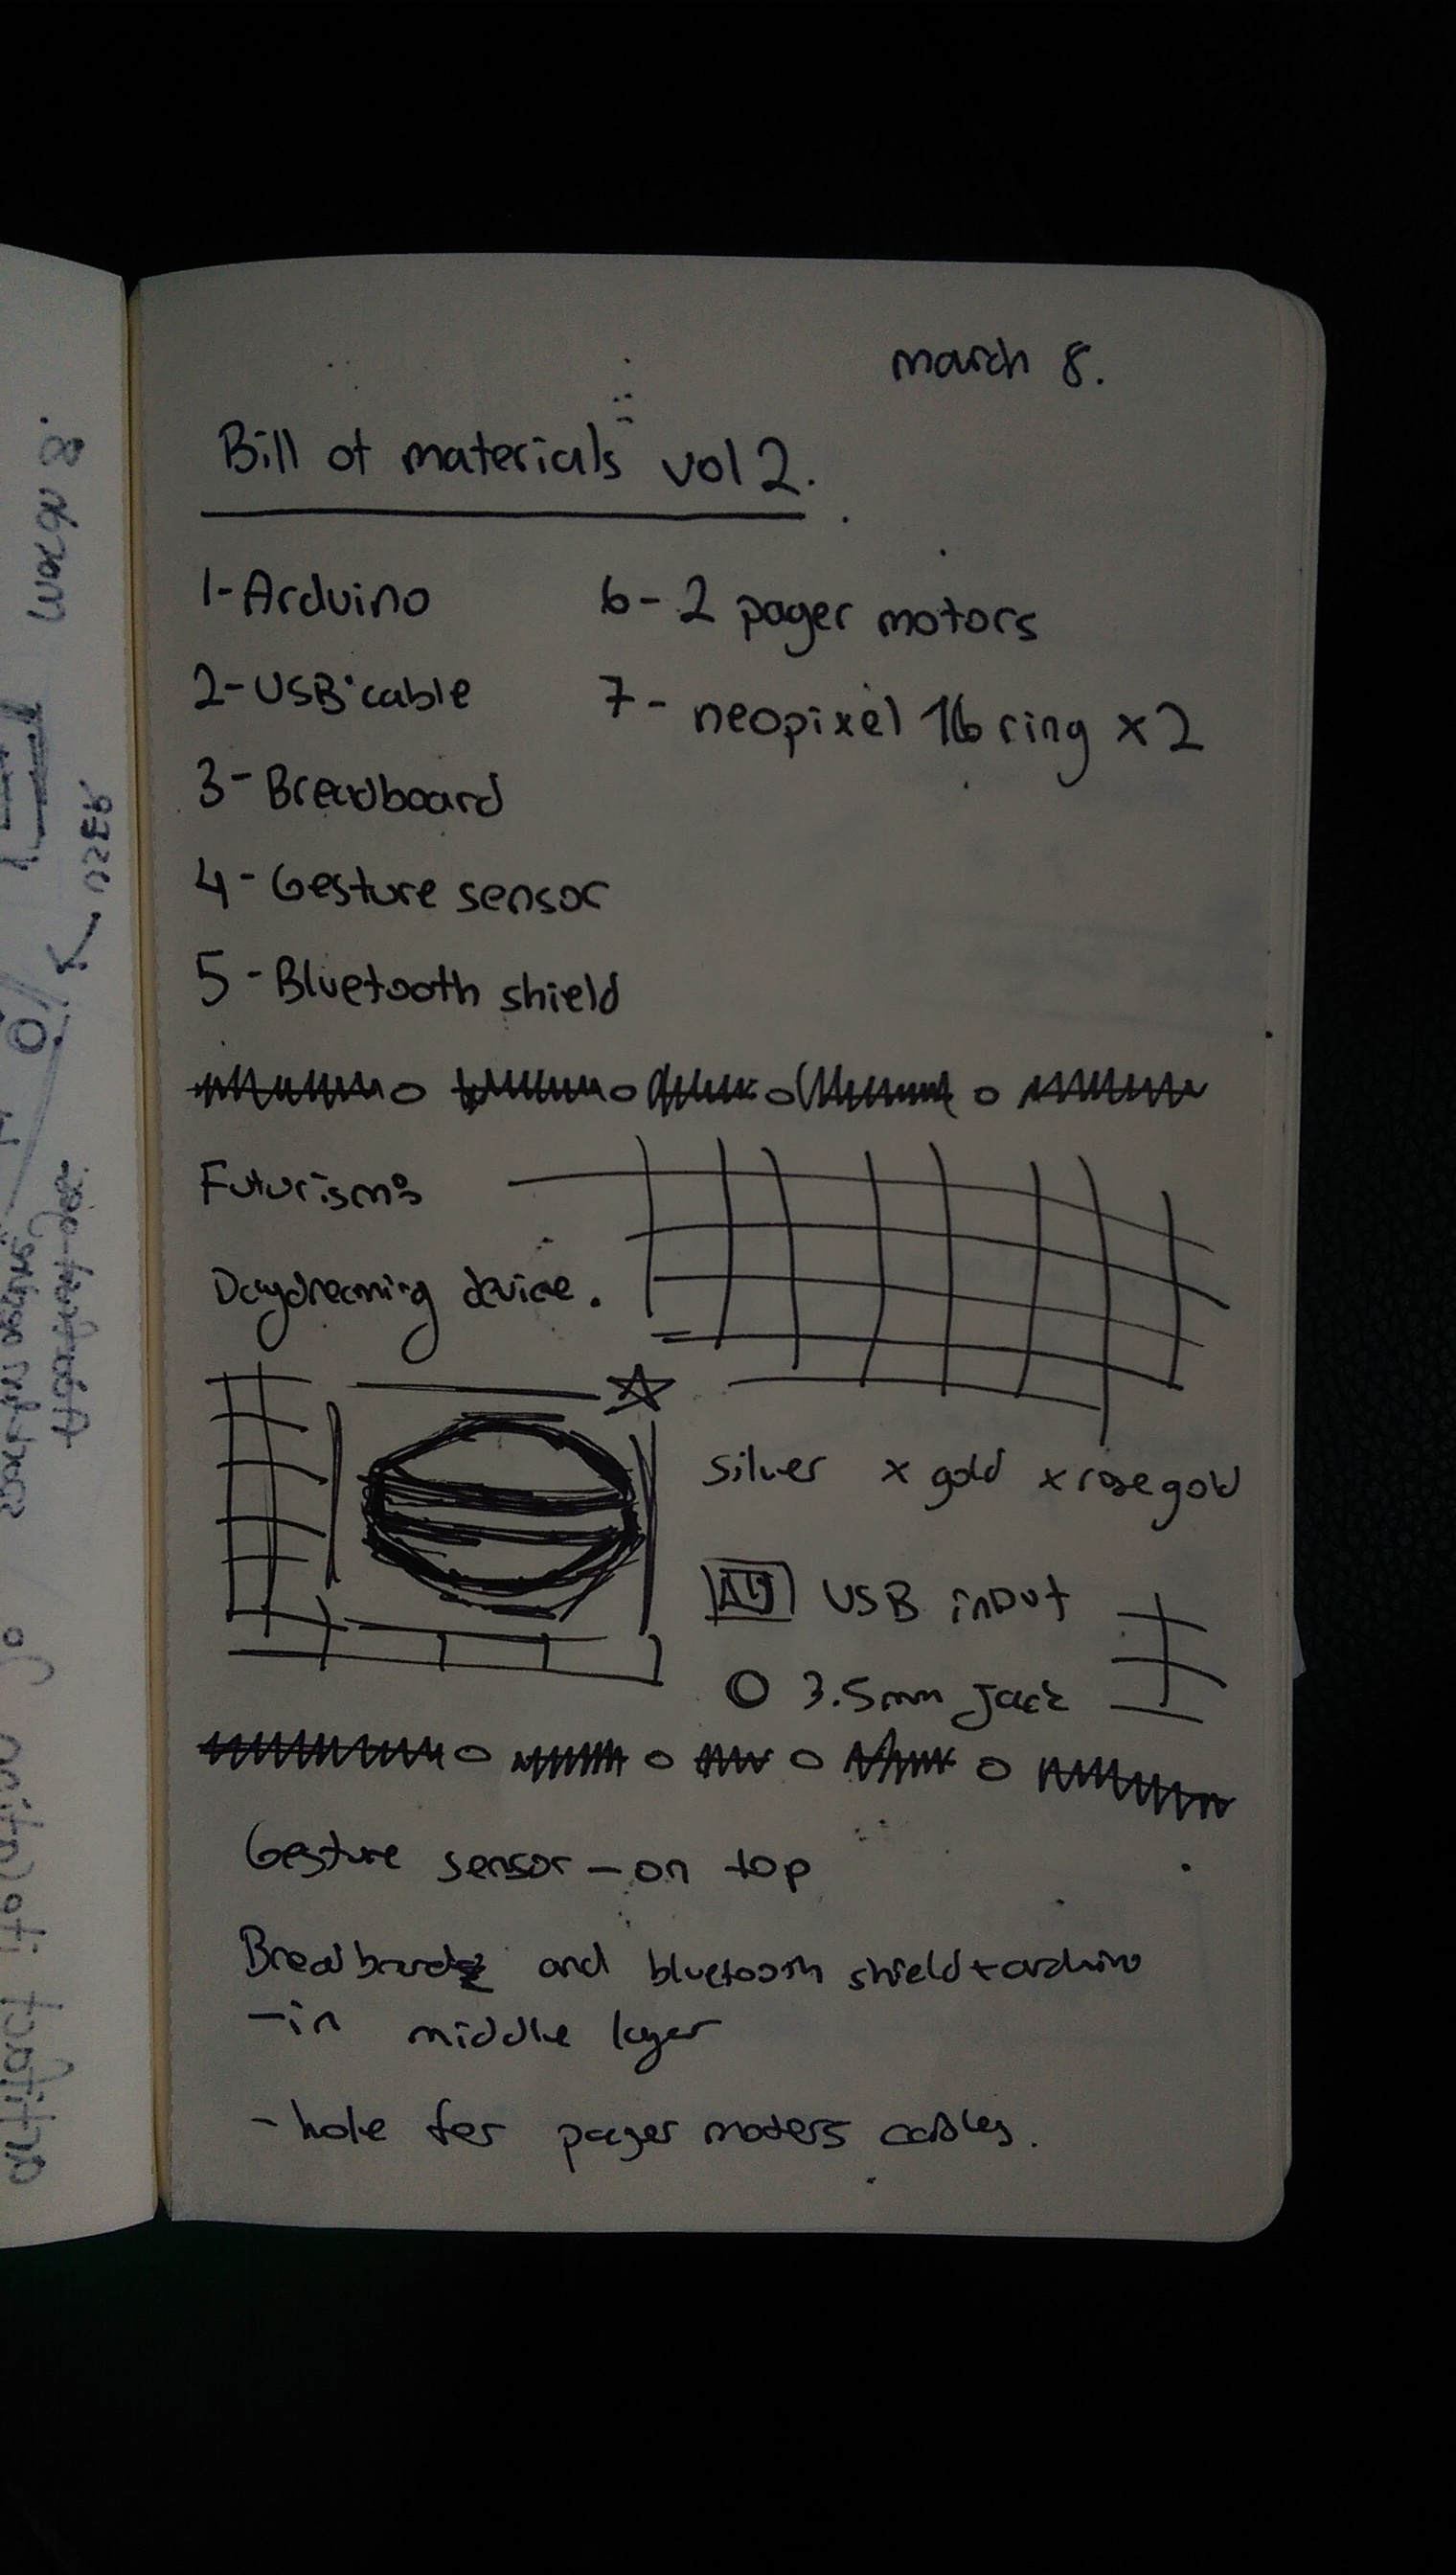 march 8.
Bill of materials vol 2.
1-Arduino
2-USB cable
3-Breadboard
4-Gesture sensor
5-Bluetooth shield
6-2 pager motors
7-neopixel 16 ring x2
Futurism:
Daydreaming device.
silver x gold x rose gold
USB input
3.5mm Jack
Gesture sensor - on top
Breadboard and bluetooth shield + arduino
- in middle layer
- hole for pager moters cables.
march 8.
USER